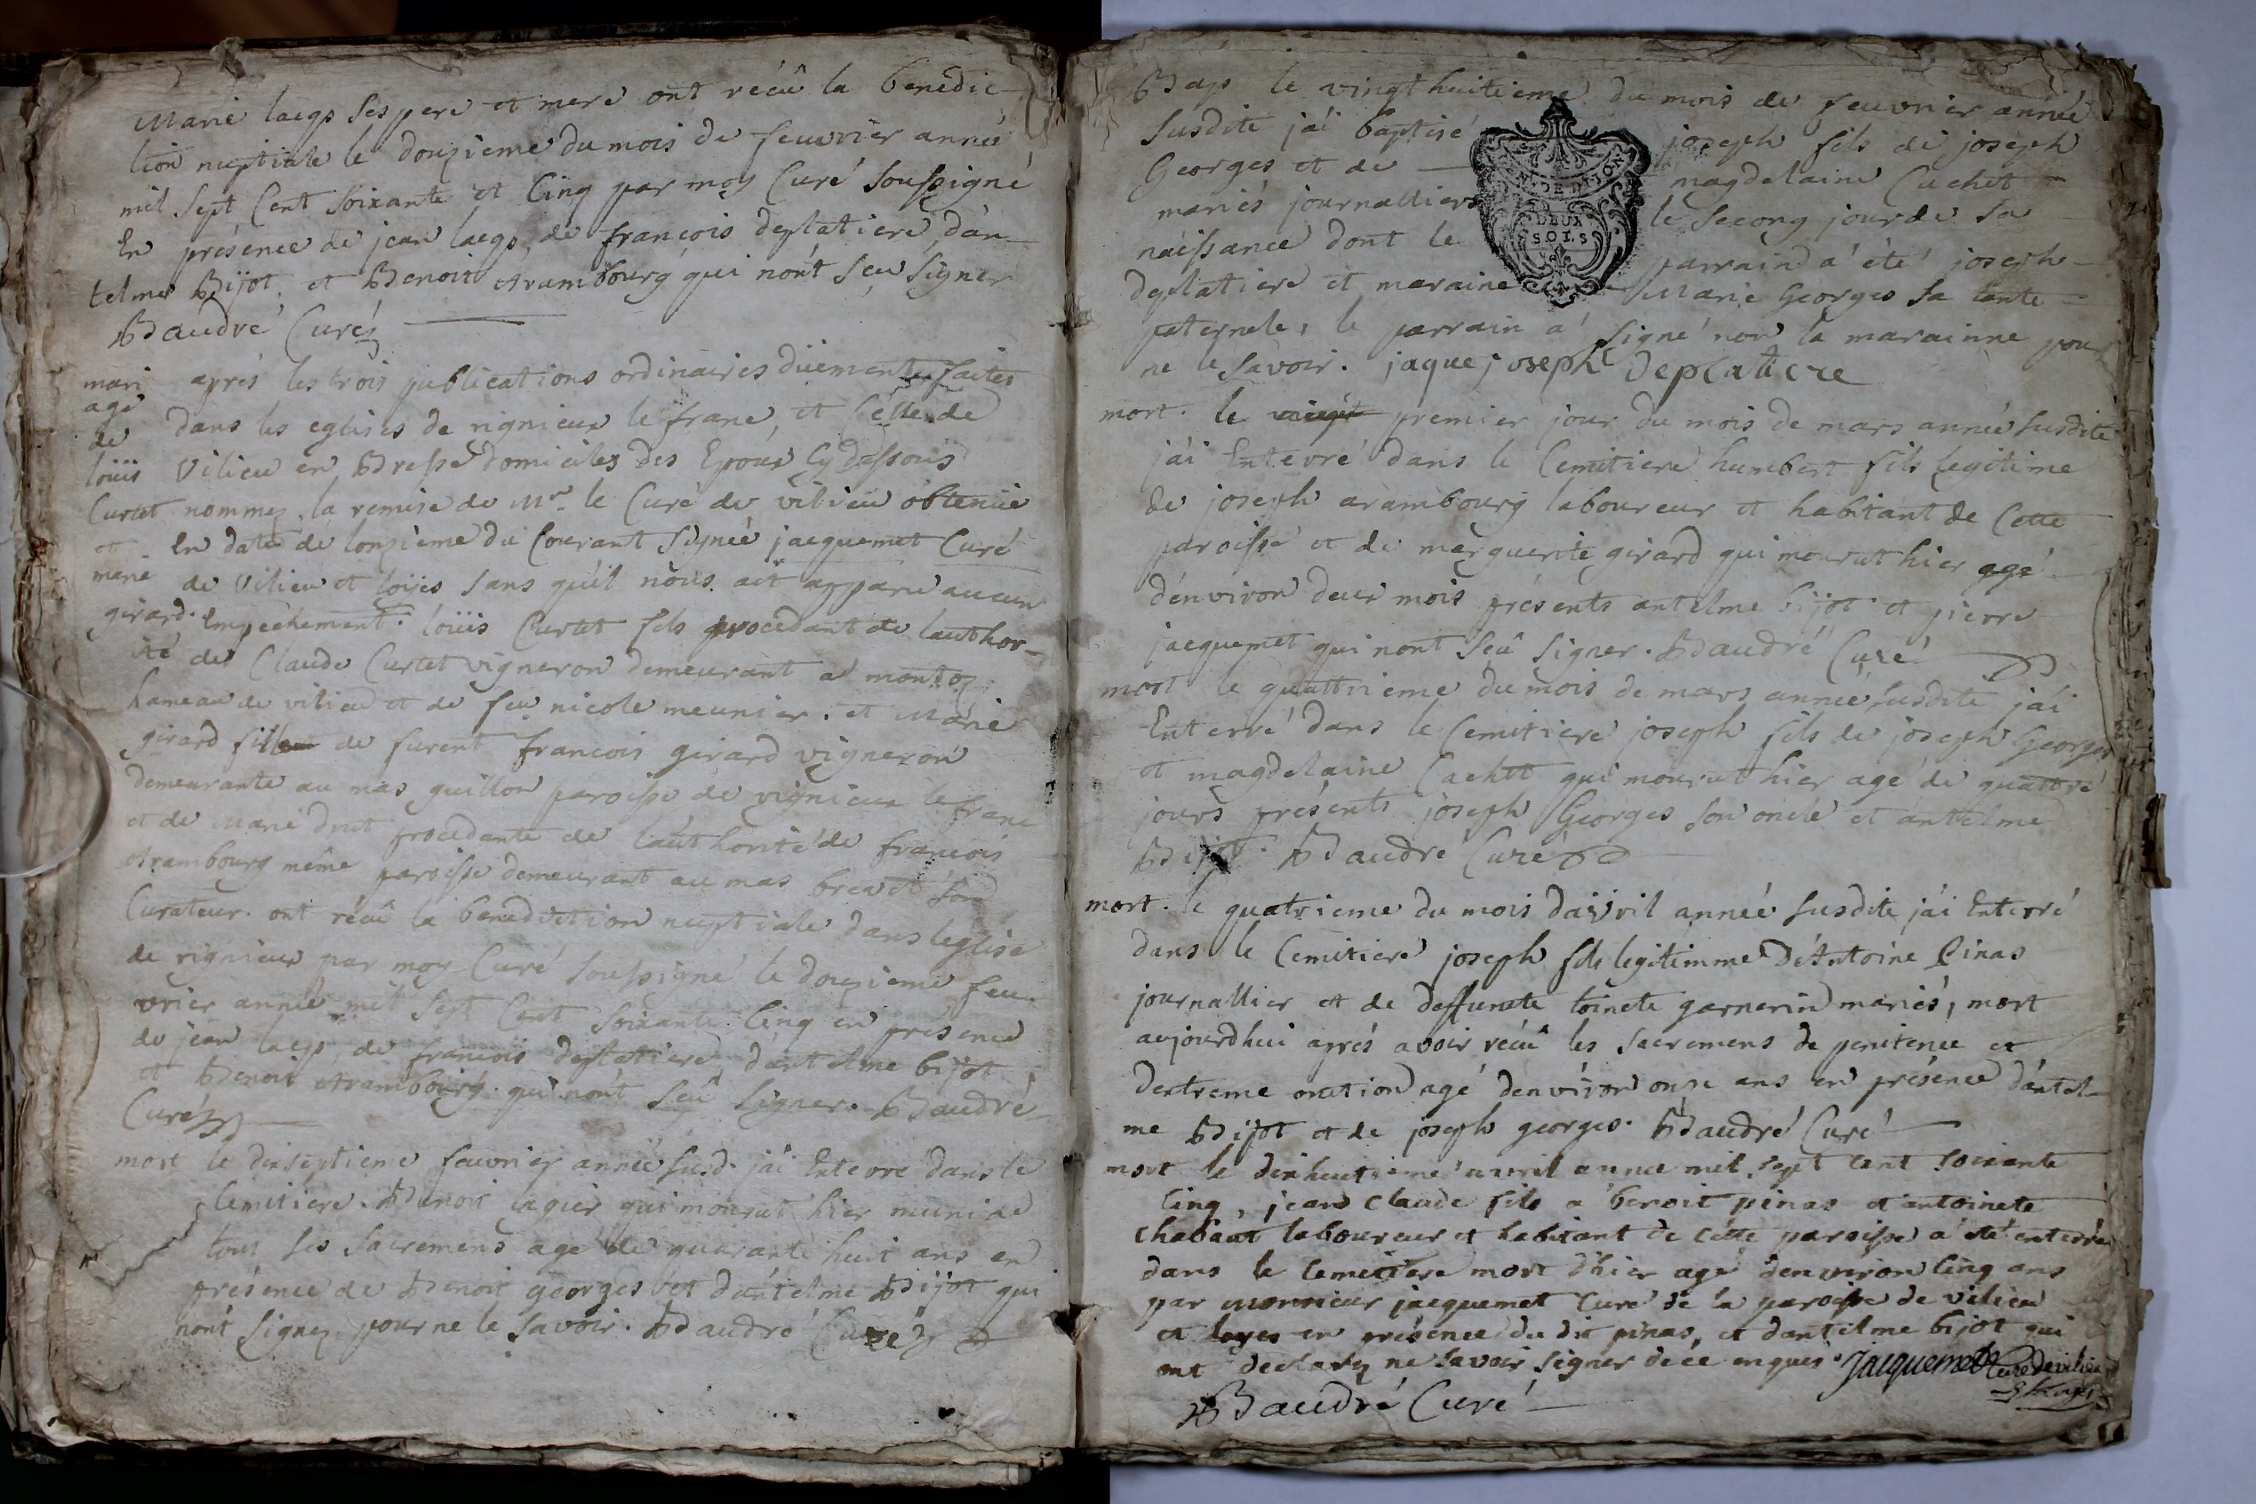 Marie laeqs ses pere et mere ont récû la benedic-
tion nuptiale le douzieme du mois de feuvrier année
mil sept Cent soixante et Cinq par moy Curé soussigné
En présence de jean laeqs, de francois deplatiere, d'an
telme Bijot, et Benoit Arambourg qui nont seu signer
Baudré Curé
mari agé de loüis Curtet et marie girard.
aprés les trois publications ordinaires düement faites
dans les eglises de rignieux le franc, et Celle de
Vilieu en Bresse domiciles des Epoux Cy dessous
nommez, la remise de Mr. le Curé de vilieu obtenüe
En date de lonzieme du Courant signée jacquemet Curé
de Vilieu et loijes sans qu'il nous ait apparu aucun
Empechement. loüis Curtet fils procedant de lauthor-
ité de Claude Curtet vigneron demeurant a montoz
hameau de vilieu et de feu nicole meunier. et Marie
girard fille de furent francois girard vigneron
demeurante au mas guillon paroisse de rignieux le franc
et de Marie drut procedante de l'authorité de francois
Arambourg même paroisse demeurant au mas brevet son
Curateur. ont récû la benediction nuptiale dans leglise
de rignieux par moy Curé soussigné le douzieme feu-
vrier année mil sept Cent soixante Cinq en présence
de jean laeqs, de francois deplatiere, d'antelme bijot,
et Benoit Arambourg. qui nont seû signer. Baudré
Curé
mort le dixseptieme feuvrier année susd. jai Enterré dans le
Cemitiere. Benoit qui mourut hier muni de
tous ses sacremens agé de quarante huit ans en
présence de Benoit georges et d'antelme Bijot qui
nont signez pour ne le savoir. Baudré Curé
Bap le vingt huitieme du mois de feuvrier année
susdite jái baptisé joseph fils de joseph
Georges et de magdelaine Cachet
mariés journalliers le second jour de sa
naissance dont le parrain a été joseph
deplatiere et maraine Marie Georges sa tante
paternele, le parrain a signé non la marainne pour
ne le savoir. jaque joseph Deplatiere
mort. le premier jour du mois de mars année susdite
jái Enterré dans le Cemitiere humbert fils legitime
de joseph arambourg laboureur et habitant de Cette
paroisse et de marguerite girard qui mourut hier agé
d'environ deux mois présents antelme bijot et pierre
jacquemet qui nont seû signer. Baudré Curé
mort le quattrieme du mois de mars année susdite jái
Enterré dans le Cemitiere joseph fils de joseph Georges
et magdelaine Cachet qui mourut hier agé de quattre
jours présents joseph Georges son oncle et antelme
Bijot. Baudré Curé
mort. le quatrieme du mois d'avril année susdite jái Enterré
dans le Cemitiere joseph fils legitimme d'Antoine Pinas
journallier et de deffuncte toinete garnerin mariés, mort
aujourdhui aprés avoir récû les sacremens de penitence et
dextreme onction agé denviron onze ans en présence d'antel-
me Bijot et de joseph georges. Baudré Curé
mort le dixhuitieme avril année mil sept cent soixante
Cinq, jean claude fils a benoit pinas et antoinete
chabaut laboureur et habitant de cette paroisse a été enterré
dans le Cemetiere mort d'hier agé denviron Cinq ans
par monsieur jacquemet Curé de la paroisse de vilieu
et loyes en présence du dit pinas, et dantelme bijot qui
ont declarez ne savoir signer de ce enquis. Jacquemet Curé de vilieu
Baudré Curé